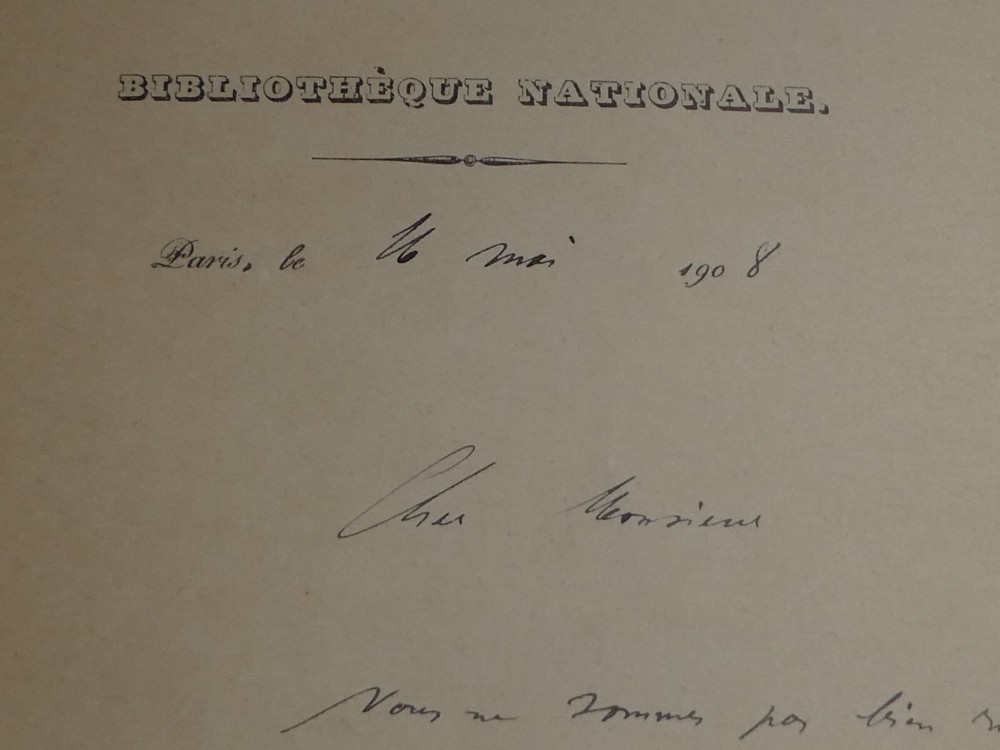 BIBLIOTHÈQUE NATIONALE.
Paris, le 16 mai 1908
Cher Monsieur
Nous ne sommes pas bien